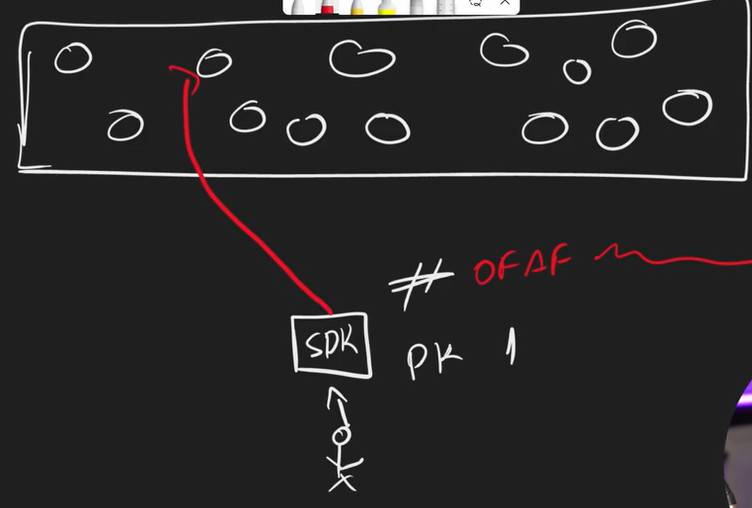 # OFAF
SDK
PK 1